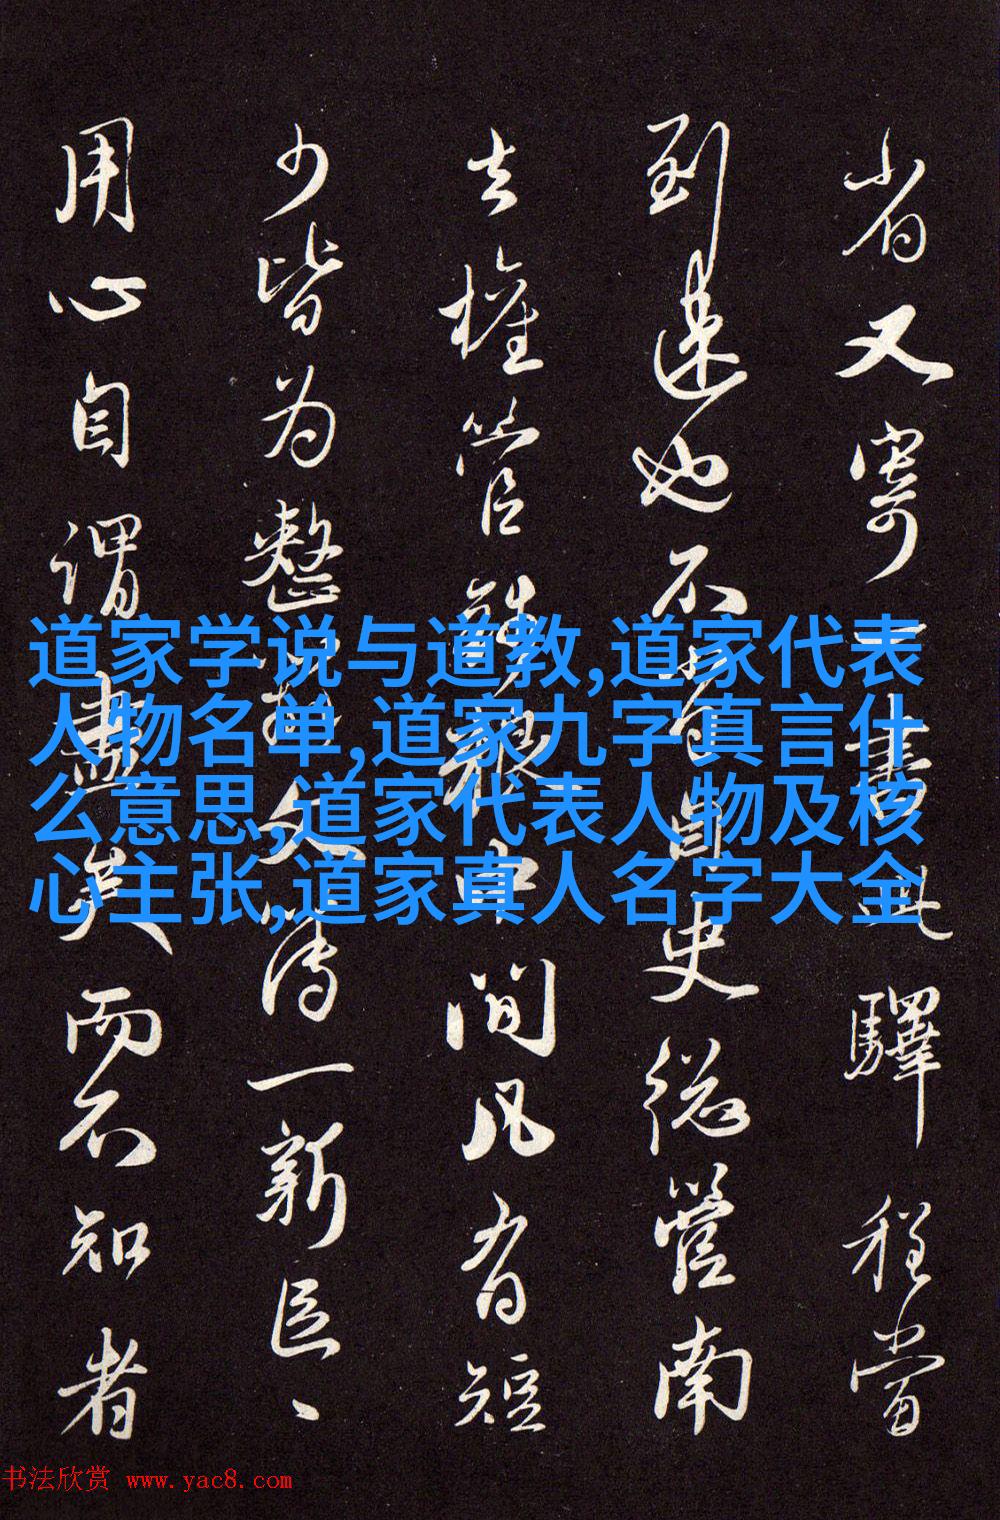 省又寄書驛程當
到速也不史総管南
去權管中間凡有短
少皆为整文簿一新
用心自謂盡矣而不知者
道家学说与道教,道家代表
人物名单,道家九字真言什
么意思,道家代表人物及核
心主张,道家真人名字大全
书法欣赏 www.yac8.com